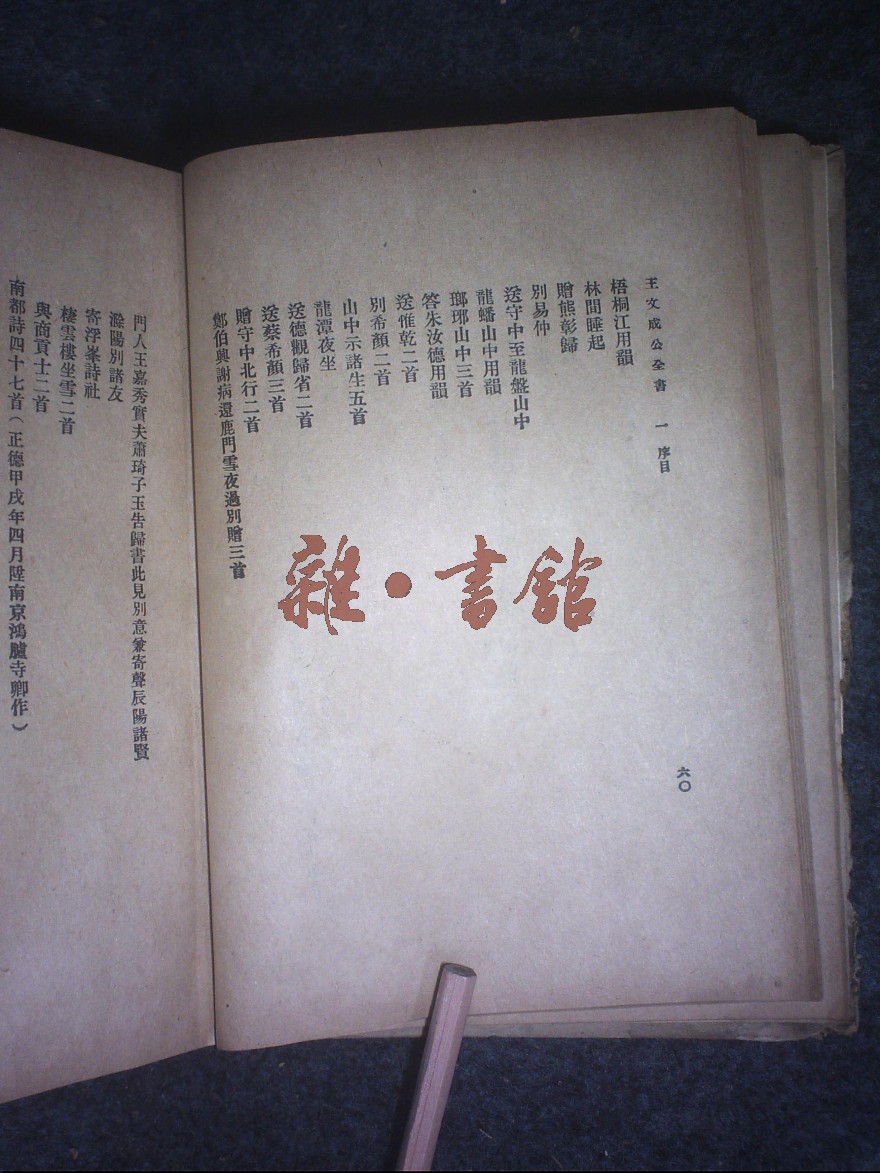 王文成公全書 一 序目
六〇
梧桐江用韻
林間睡起
贈熊彰歸
別易仲
送守中至龍盤山中
龍蟠山中用韻
瑯琊山中三首
答朱汝德用韻
送惟乾二首
別希顏二首
山中示諸生五首
龍潭夜坐
送德觀歸省二首
送蔡希顏三首
贈守中北行二首
鄭伯興謝病還鹿門雪夜過別贈三首
門人王嘉秀實夫蕭琦子玉告歸書此見別意兼寄聲辰陽諸賢
滁陽別諸友
寄浮峯詩社
棲雲樓坐雪二首
與商貢士二首
南都詩四十七首（正德甲戌年四月陞南京鴻臚寺卿作）
雜·書館